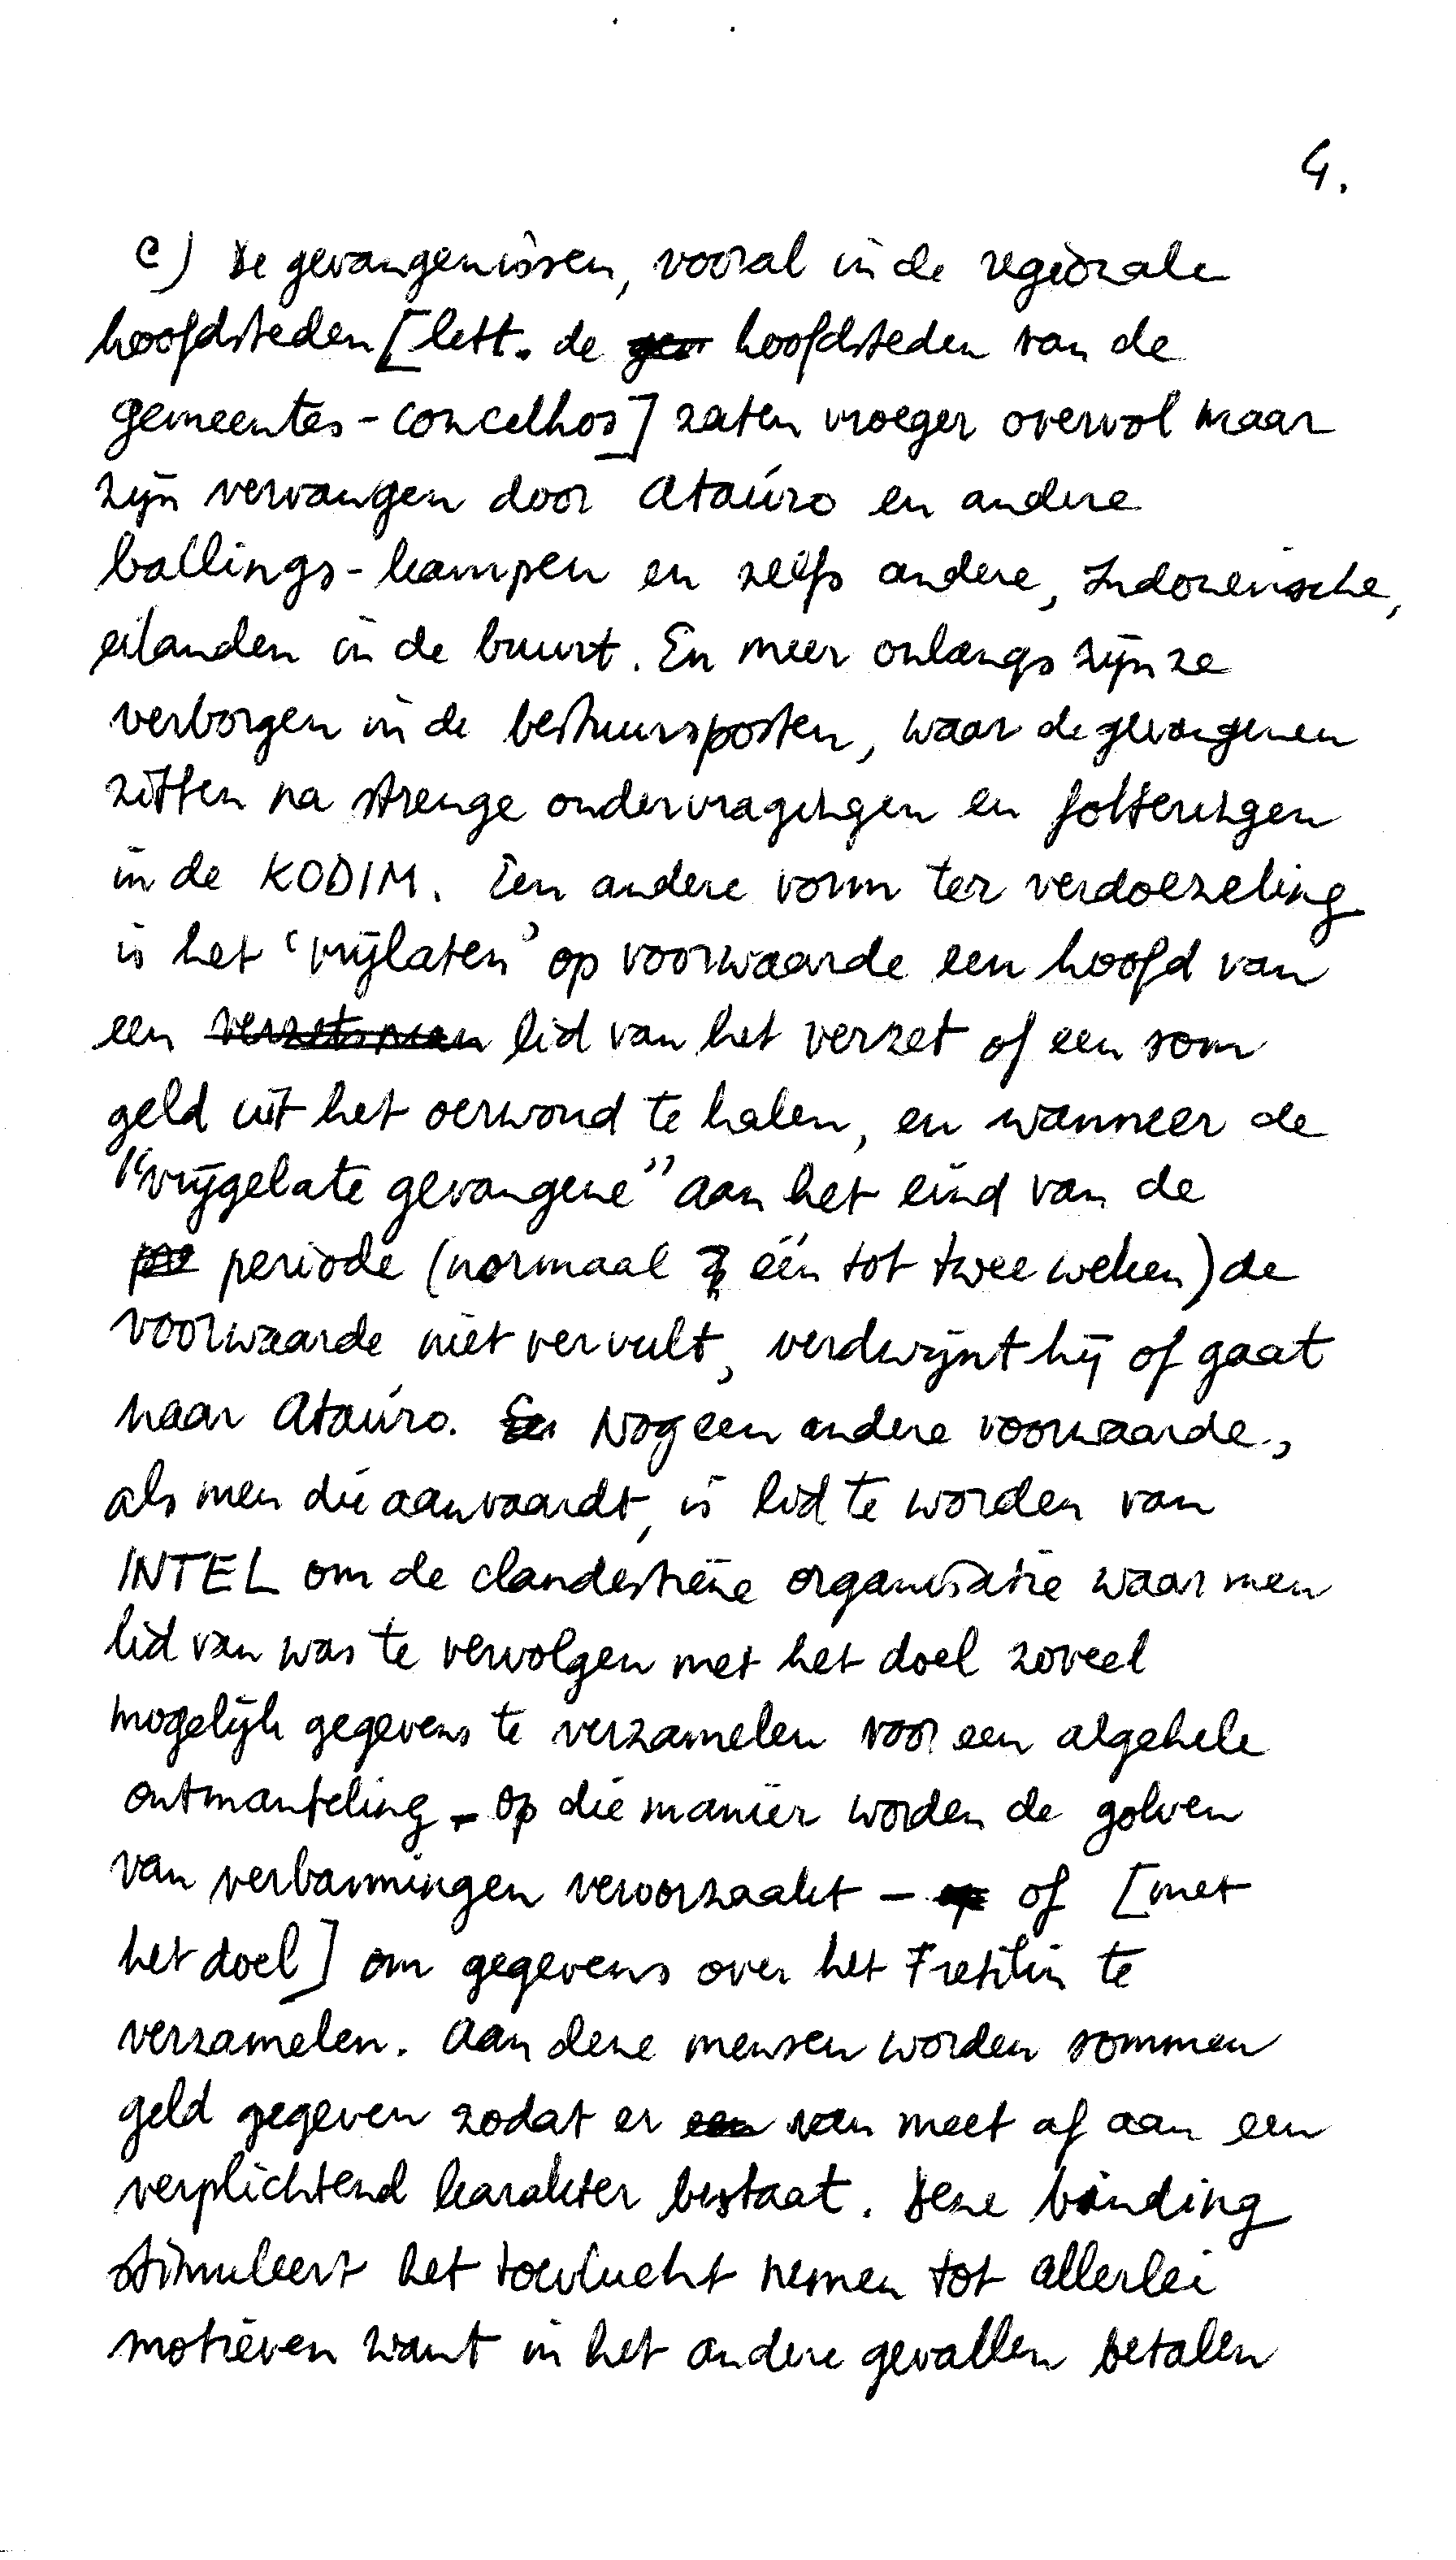 4.
c) De gevangenissen, vooral in de regionale
hoofdsteden [lett. de hoofdsteden van de
gemeentes - concelhos] zaten vroeger overvol maar
zijn vervangen door Ataúro en andere
ballings-kampen en zelfs andere, Indonesische,
eilanden in de buurt. En meer onlangs zijn ze
verborgen in de bestuursposten, waar de gevangenen
zitten na strenge ondervragingen en folteringen
in de KODIM. Een andere vorm ter verdoezeling
is het 'vrijlaten' op voorwaarde een hoofd van
een verzetsman lid van het verzet of een som
geld uit het oerwoud te halen, en wanneer de
"vrijgelate gevangene" aan het eind van de
periode (normaal één tot twee weken) de
voorwaarde niet vervult, verdwijnt hij of gaat
naar Ataúro. Nog een andere voorwaarde,
als men die aanvaardt, is lid te worden van
INTEL om de clandestiene organisatie waar men
lid van was te vervolgen met het doel zoveel
mogelijk gegevens te verzamelen voor een algehele
ontmanteling - op die manier worden de golven
van verbanningen veroorzaakt - op of [met
het doel] om gegevens over het Fretilin te
verzamelen. Aan deze mensen worden sommen
geld gegeven zodat er een van meet af aan een
verplichtend karakter bestaat. Deze binding
stimuleert het toevlucht nemen tot allerlei
motieven want in het andere gevallen betalen